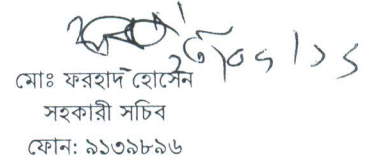 মোঃ ফরহাদ হোসেন
সহকারী সচিব
ফোন: ৯১৩৯৮৯৬